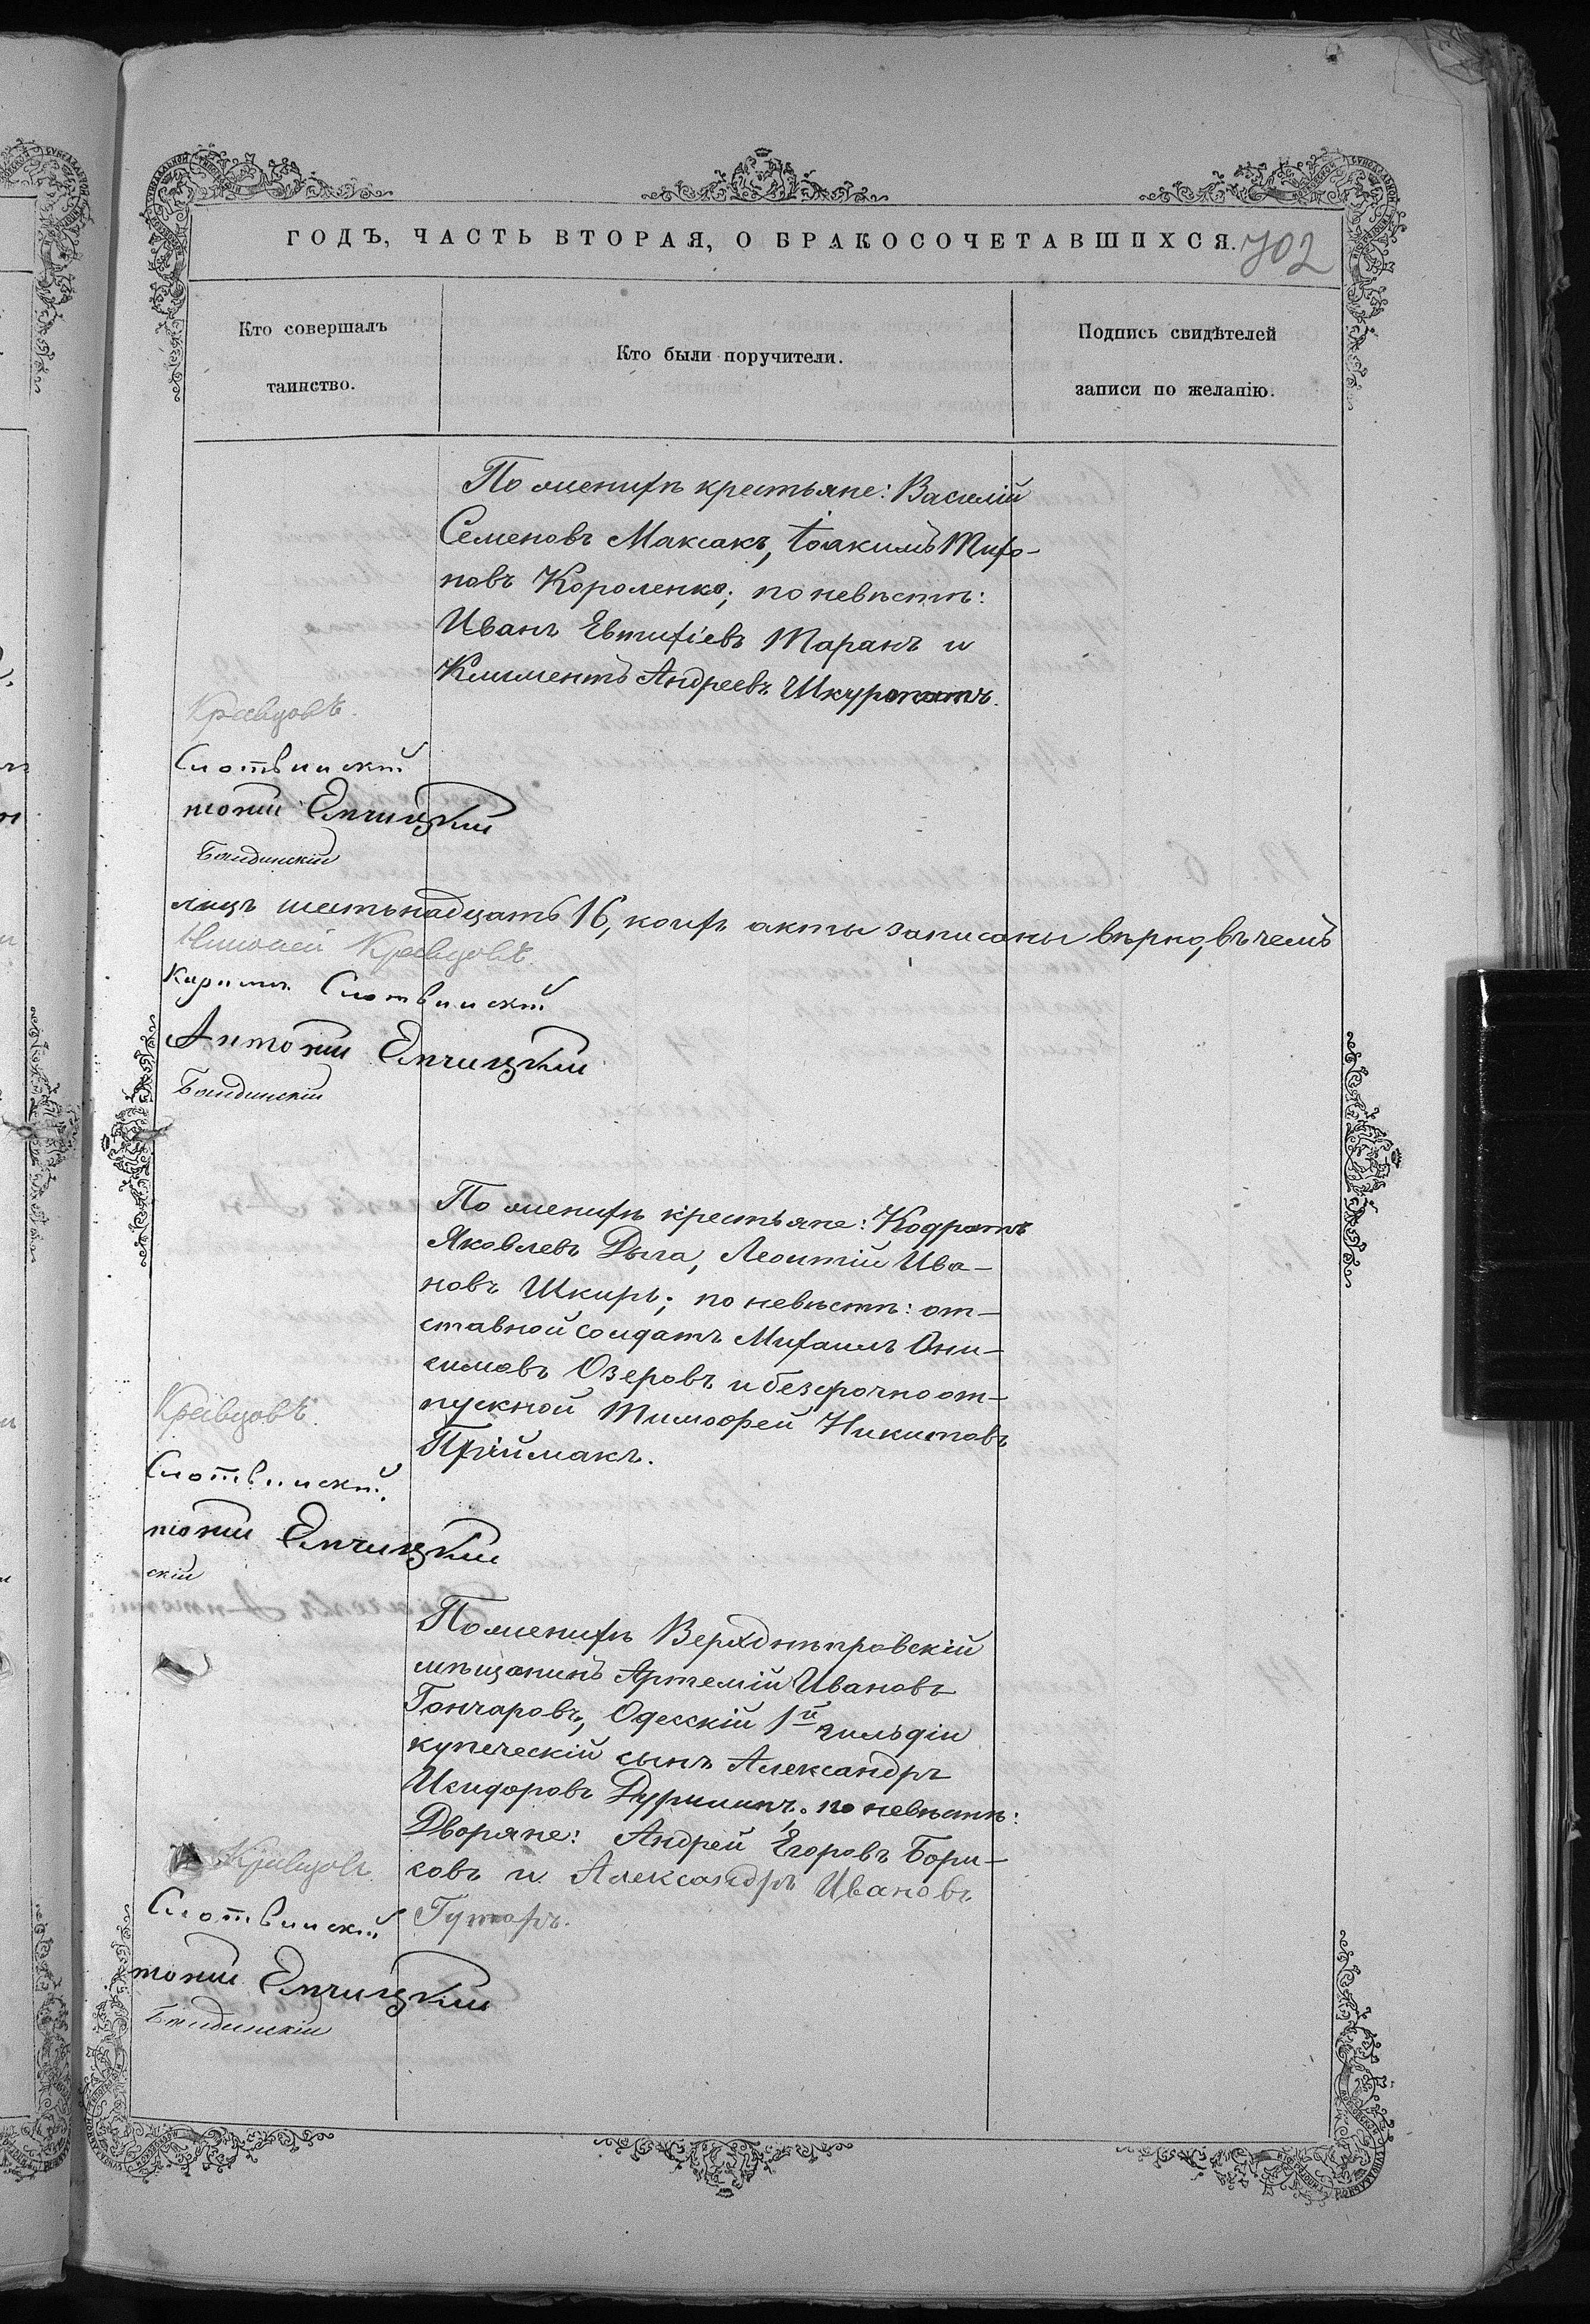 ГОДЪ, ЧАСТЬ ВТОРАЯ, О БРАКОСОЧЕТАВШИХСЯ.
702
Кто совершалъ
таинство.
Кто были поручители.
Подпись свидѣтелей
записи по желанію.
По женихѣ крестьяне: Василій
Семеновъ Максакъ, Іоакимъ Тихо-
новъ Короленко; по невѣстѣ:
Иванъ Евтихіевъ Таранъ и
Климентъ Андреевъ Шкуропатъ.
Кравцовъ.
Слотвинскій
тоній Елчицкій
лицъ шестьнадцать 16, коихъ акты записаны вѣрно, въ чемъ
Николай Кравцовъ.
Кириллъ Слотвинскій
Антоній Елчицкій
По женихѣ крестьяне: Кодратъ
Яковлевъ Дыга, Леонтій Ива-
новъ Шкиръ; по невѣстѣ: от-
ставной солдатъ Михаилъ Они-
симовъ Озеровъ и безсрочноот-
пускной Тимофей Никитовъ
Пріймакъ.
Кравцовъ.
Слотвинскій.
тоній Елчицкій
скій
По женихѣ Верхднѣпровскій
мѣщанинъ Артемій Ивановъ
Гончаровъ, Одесскій 1й гильдіи
купеческій сынъ Александръ
Исидоровъ по невѣстѣ:
Дворяне: Андрей Егоровъ Бори-
совъ и Александръ Ивановъ
Гуторъ.
Кравцовъ
Слотвинскій
тоній Елчицкій